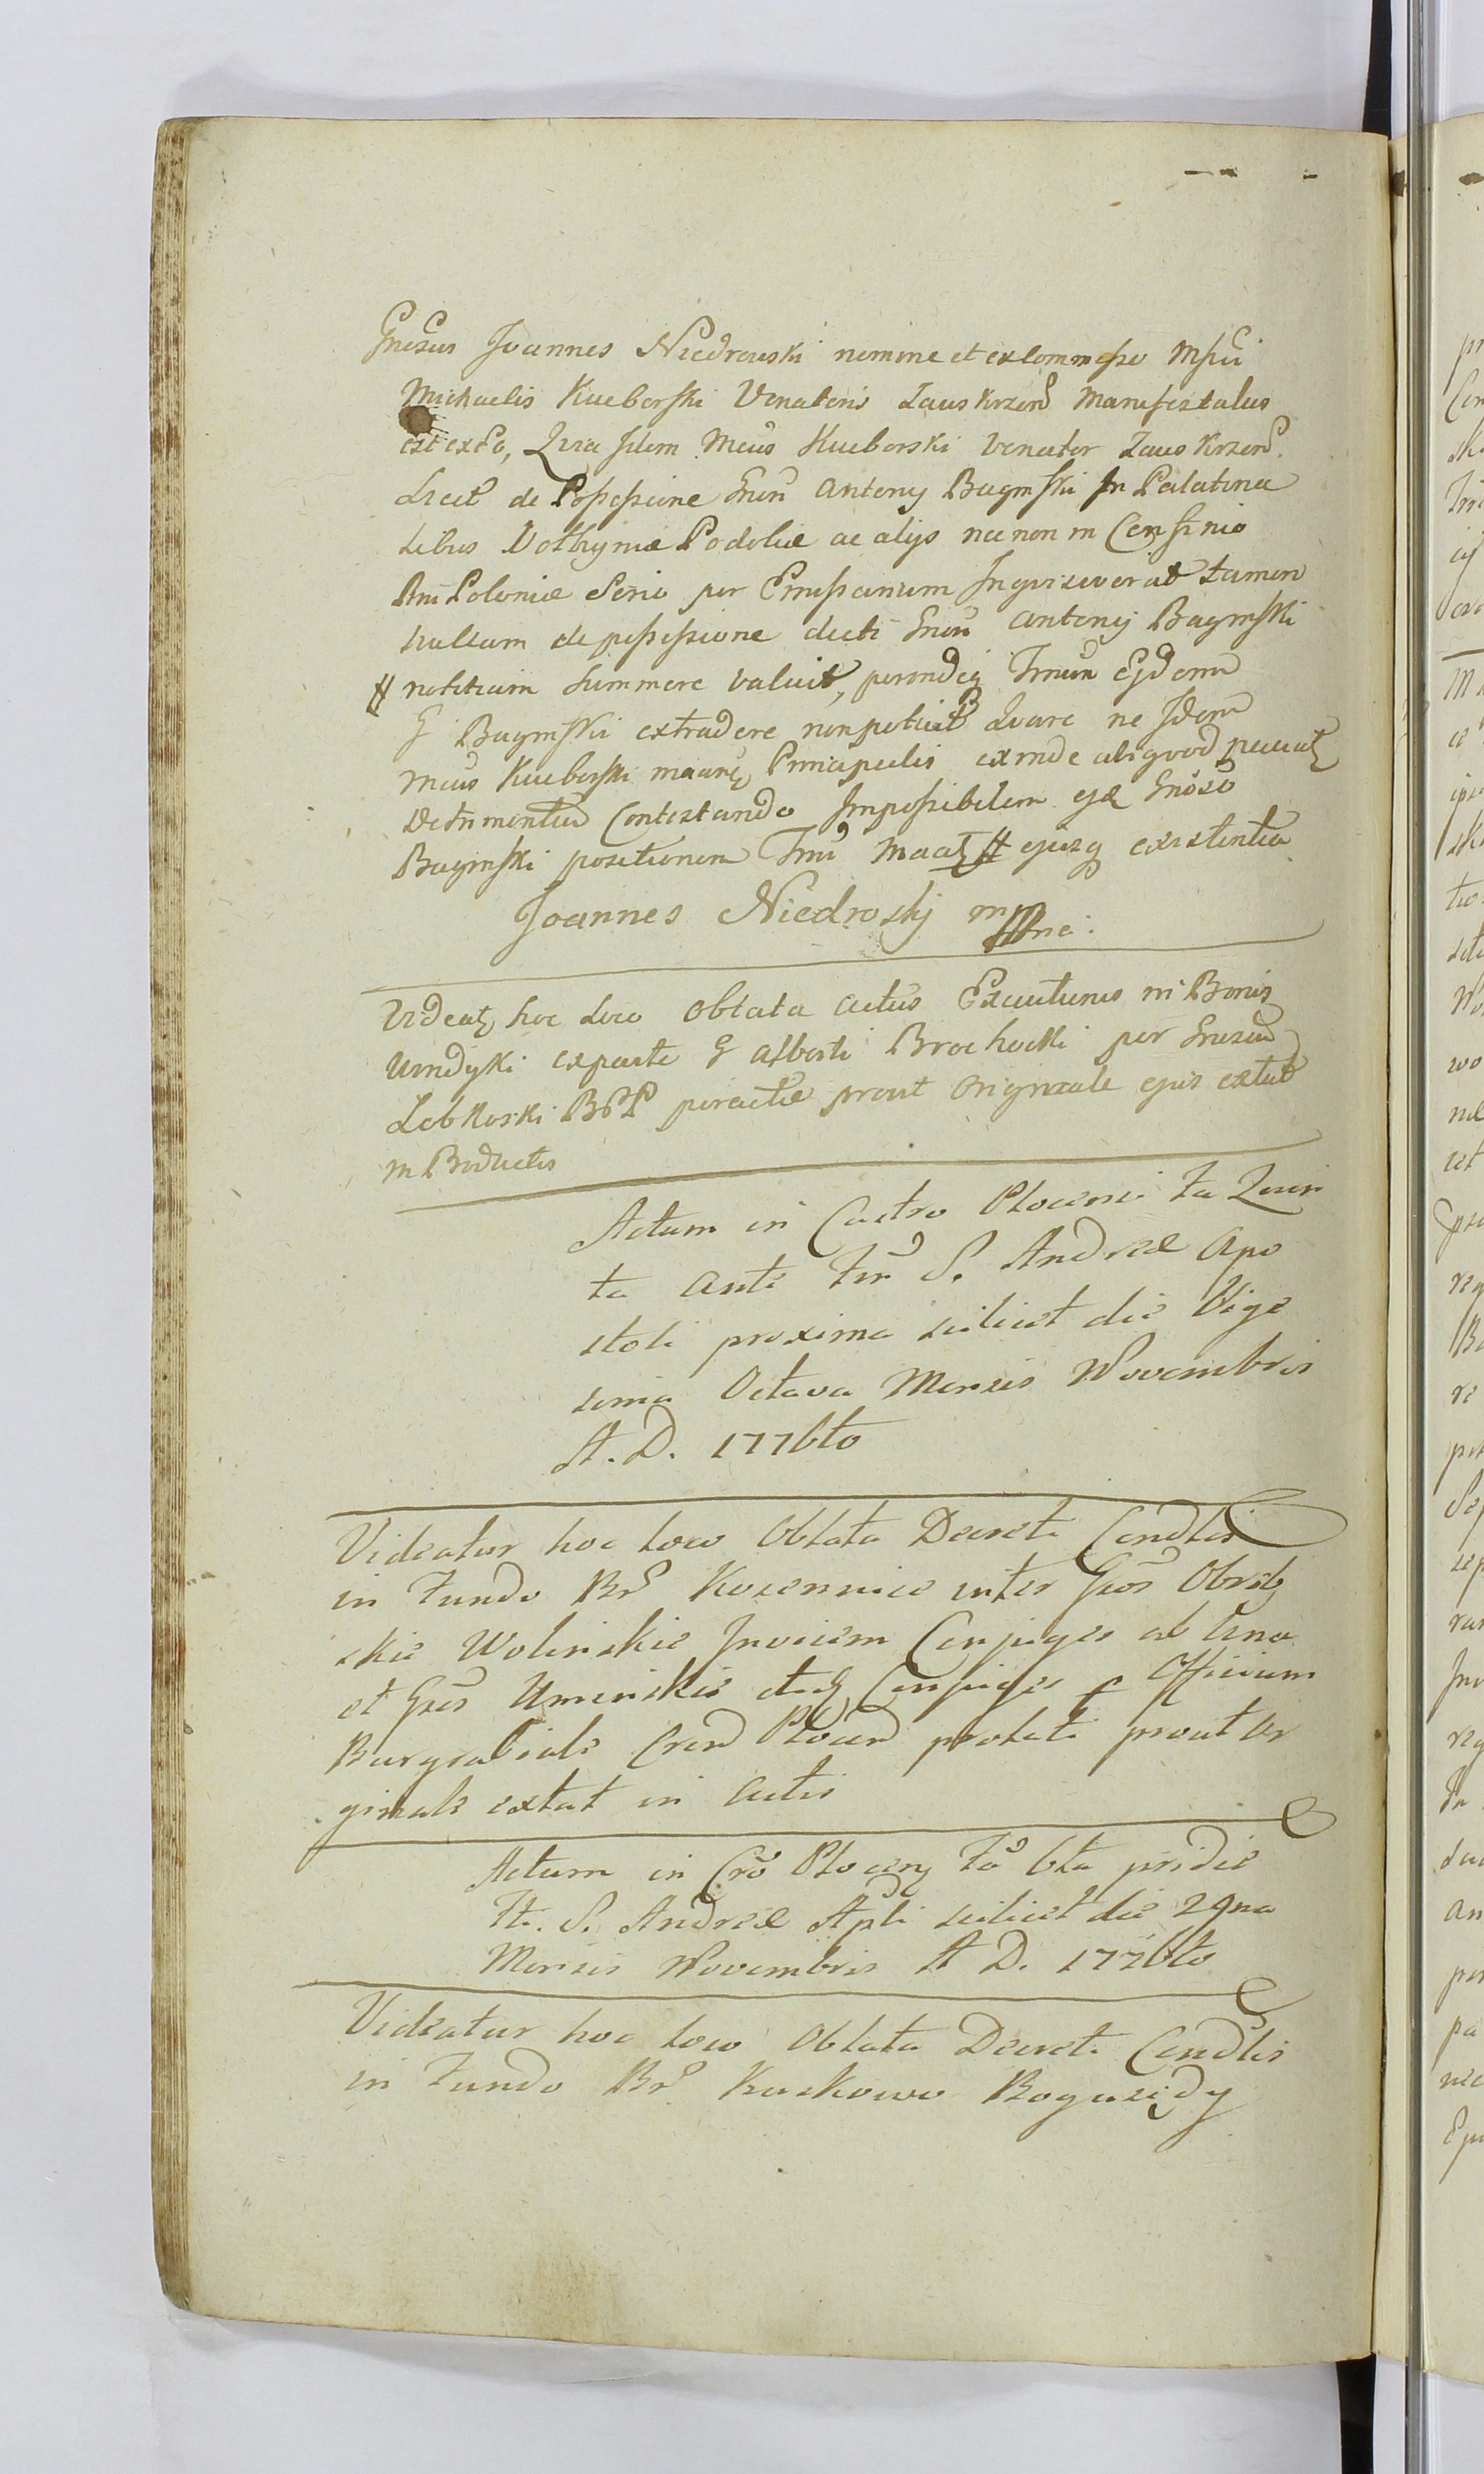 Gnesus Joannes Niedrowski nomine et ex Commisso Mfici
Michaelis Kueborski Venatoris Zauskrzen Manifestatus
est ex eo, Quia Idem Mcus Kueborski Venator Zauskrzen.
Licet de Possessione Gnsi Antony Bagmski In Palatina
tibus Volhyniæ Podoliæ ac alys nec non in Confinio
Rni Poloniæ Serio per Emissarium Inquisiverat tamen
nullam de possessione dicti Gnsi Antonij Bagmski
# notitiam summere valuit, perindeq Tmum Ejdem
G Bagmski extradere non potuit Quare ne Idem
Mcus Kueborski Principalis exinde aliquod
Detrimentum Contestando Impossibilem ejd Gnoso
Bagmski positionem # ejusq existentia
Joannes Niedroskj mppria.
Videat hoc Loco Oblata Actus Executionis in Bonis
Umdyki ex parte G Alberti Brochocki per Gnesum
Lebkoski BGP peractæ prout Originale ejus extat
in Productis
Actum in Castro Plocensi ta Quin
ta Ante Fm S. Andreæ Apo
stoli proxima scilicet die Vige
sima Octava Mensis Novembris
A. D. 1776to
Videatur hoc loco Oblata Decreti Condlis
in Fundo Br Kosemnice inter Gsos Obreb
skie Wolinskie Invicem Conjuges ab Una
et Gsos Uminskie itidq Conjuges p Officium
Burgrabiale Cren Plocen prolati prout Or
ginale extat in Actis
Actum in Cro Plocen fa 6ta pridie
Fti. S. Andreæ Apli scilicet die 29na
Mensis Novembris A D. 1776to
Videatur hoc loco Oblata Decreti Condlis
in Fundo Br Kuskowo Bogusidy